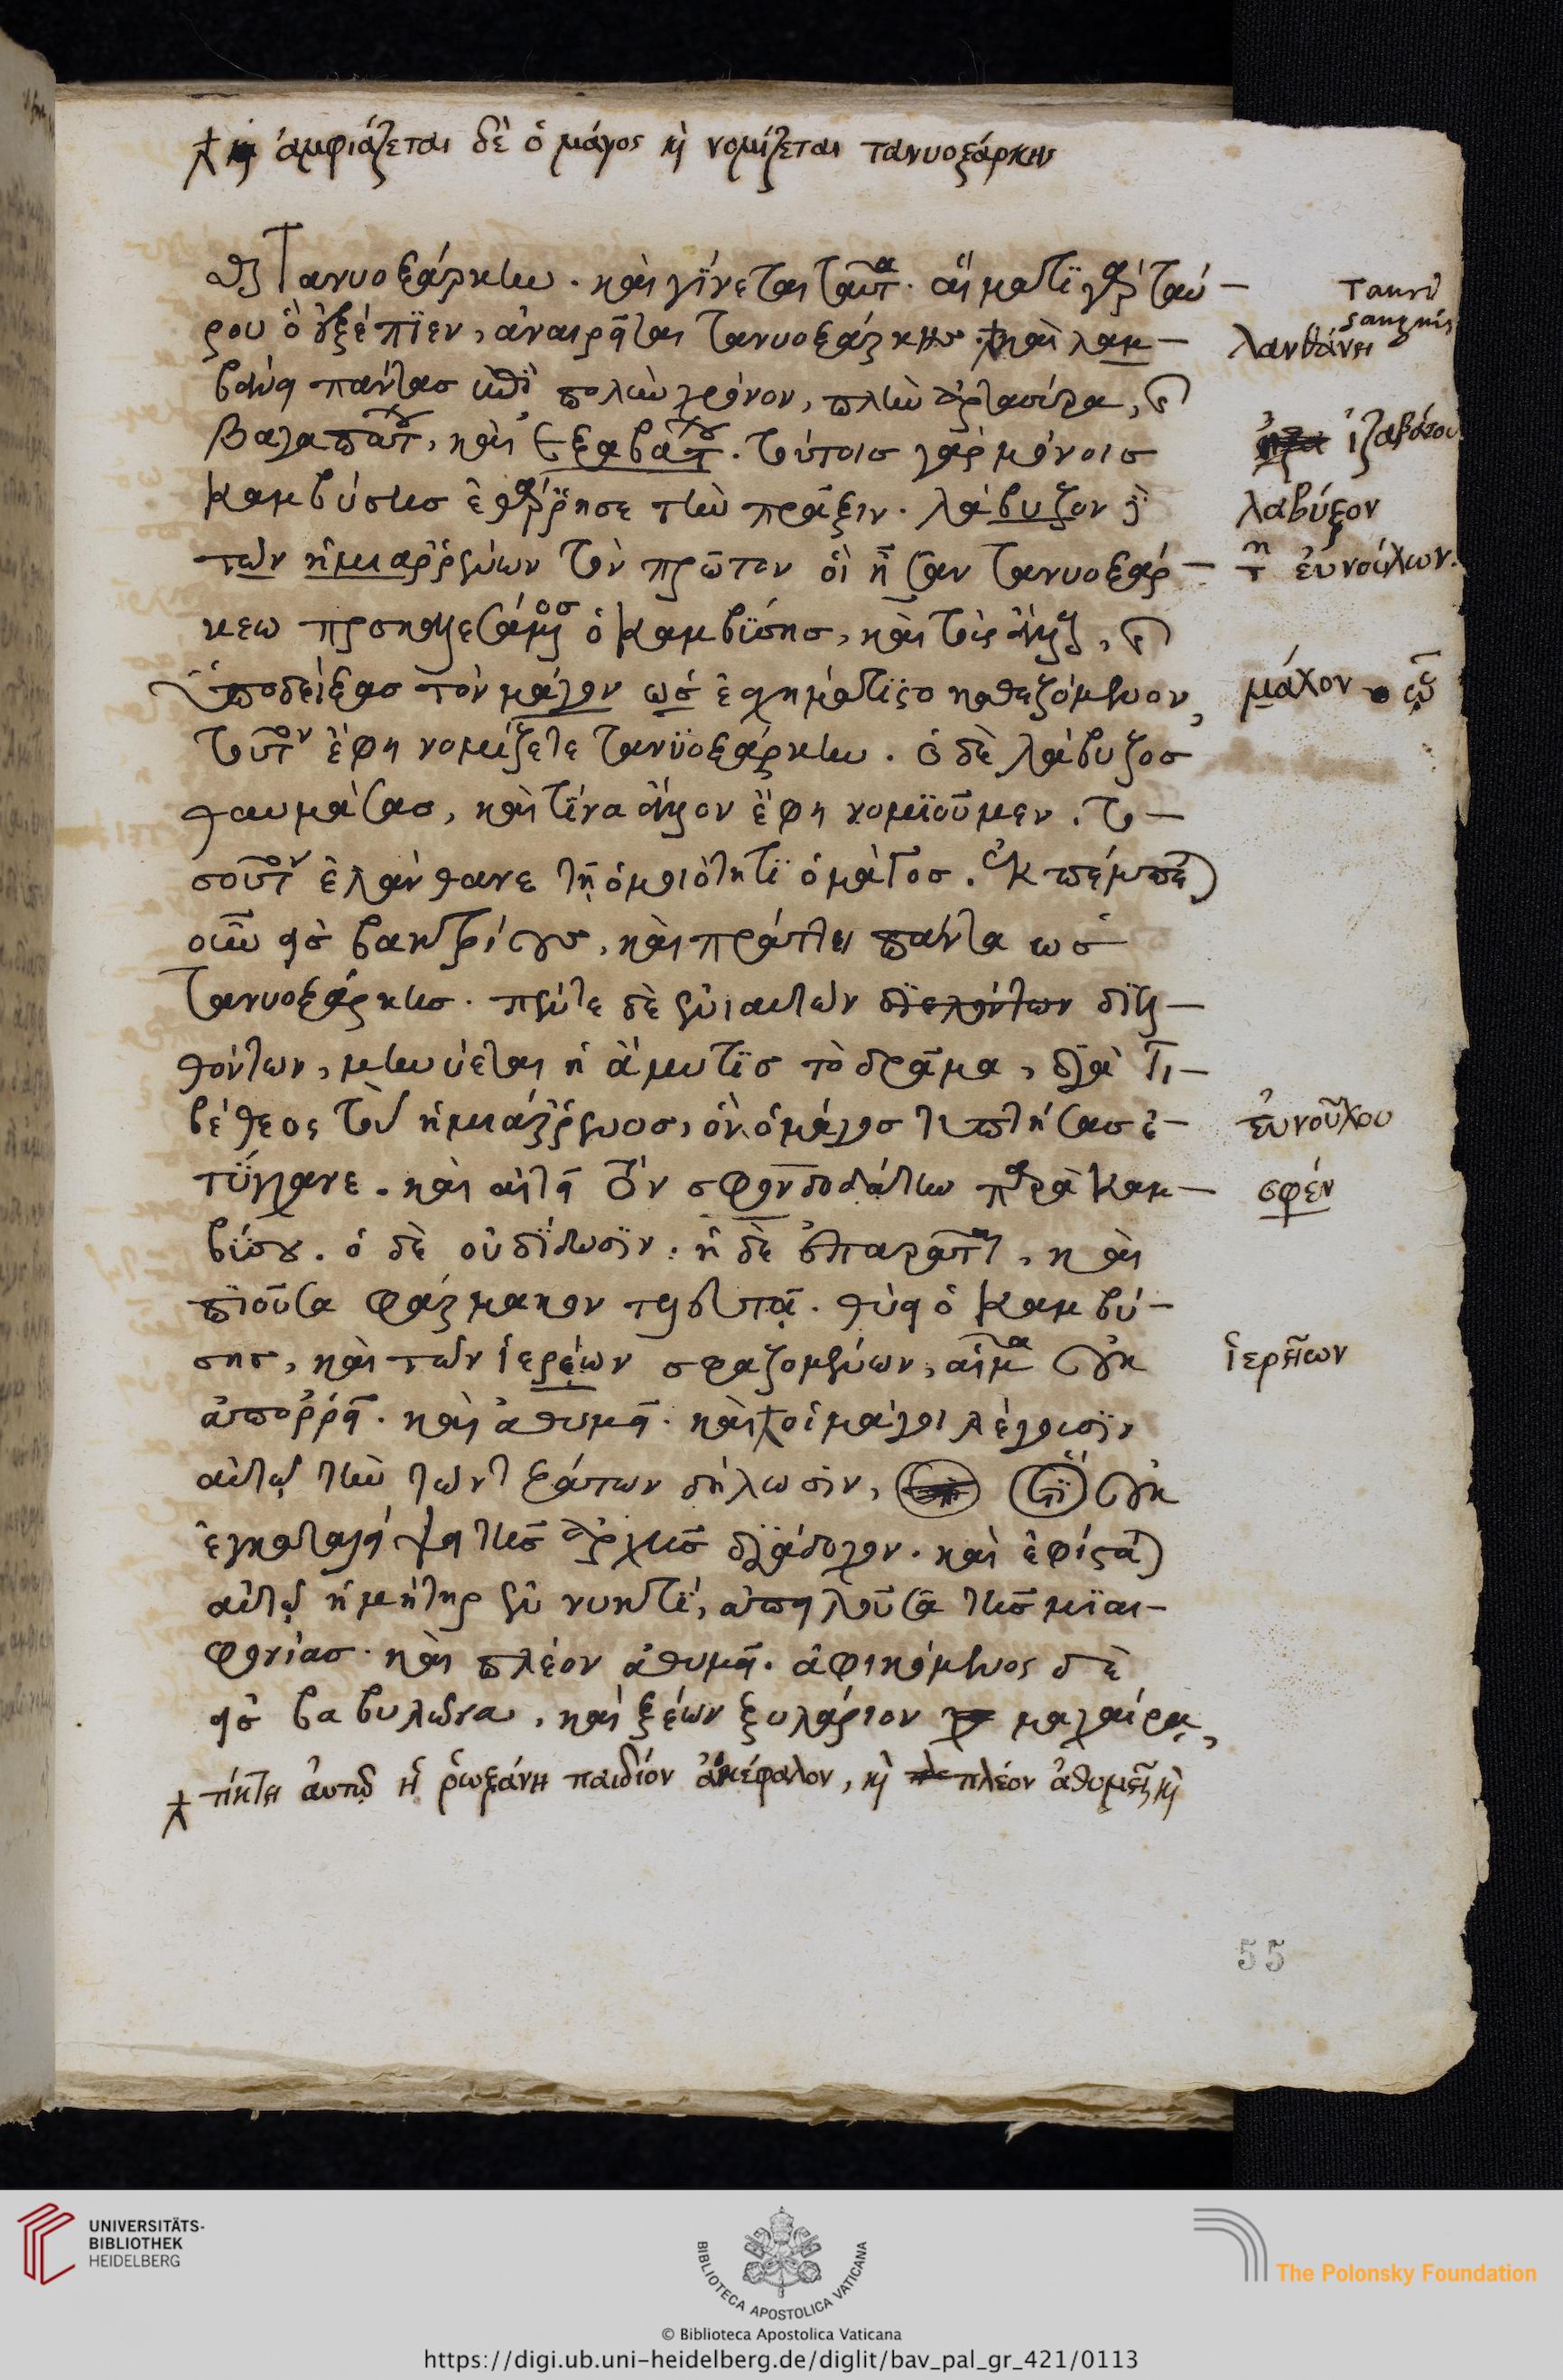 ἀμφιάζεται δὲ ὁ μάγος κὶ νομίζεται τανυοξάρκης
Τανυοξάρκην. καὶ γίνεται ταῦτα. αἵματϊ γὰρ ταύ-
ρου ὃ ἐξέπϊεν, ἀναιρεῖται τανυοξάρκης. καὶ λαμ-
βάνει πάντας ἐπὶ πολὺν χρόνον, πλὴν ἀρτασύρα,
Βαγαπάτου, καὶ ἐξαβάτου. τούτοις γὰρ μόνοις
Καμβύσης ἐθάρρησε τὴν πρᾶξιν. λάβυζον δὲ
τῶν ἡμιαρρένων τὸν πρῶτον οἳ ἦσαν τανυοξάρ-
κεω προσκαλεσάμενος ὁ Καμβϊσης, καὶ τοὺς ἄλλους,
ὑποδείξας τὸν μάγον ὡς ἐσχημάτϊστο καθεζόμενον,
τοῦτον ἔφη νομίζετε τανϋοξάρκην. ὁ δὲ λάβυζος
θαυμάσας, καὶ τίνα ἄλλον ἔφη νομϊοῦμεν. το-
σοῦτον ἐλάνθανε τῇ ὁμοιότητϊ ὁ μάγος. ἐκπέμπεται
οὖν εἰς βακτρίους, καὶ πράττει πάντα ὡς
Τανυοξάρκης. πέντε δὲ ἐνιαυτῶν διελθόντων διελ-
θόντων, μηνύεται ἡ ἄμυτϊς τὸ δρᾶμα, διὰ Τι-
βέθεος τοῦ ἡμιάρρενος, ὃν ὁ μάγος τυπτήσας ἐ-
τύγχανε. καὶ αἰτεῖ τὸν σφονδοδάτην παρὰ Καμ-
βίσου. ὁ δὲ οὐ δίδωσϊν. ἡ δὲ ἐπαρᾶται, καὶ
πϊοῦσα φάρμακον τελευτᾷ. θύει ὁ Καμβύ-
σης, καὶ τῶν ἱερέων σφαζομένων, αἷμα οὐκ
ἀπορρεῖ. καὶ ἀθυμεῖ. καὶ οἱ μάγοι λέγουσϊν
αὐτῷ τὴν τῶν τεξάτων δήλωσϊν, ὅτϊ οὐκ
ἐγκαταλείψει τῆς ἀρχῆς διάδοχον. καὶ ἐφίσταται
αὐτῷ ἡ μήτηρ ἐν νυκτϊ, ἀπειλοῦσα τῆς μιαι-
φονίας. καὶ πλέον ἀθυμεῖ. ἀφικόμενος δὲ
εἰς βαβυλῶνα, καὶ ξέων ξυλάριον μαχαίρᾳ,
τίκτει αὐτῷ ἡ ῥωξάνη παιδίον ἀκέφαλον, κὶ πλέον ἀθυμεῖ κὶ
Tauri
sanguis
λανθάνει
ἰζαβάτου
λαβύξον
τ εὐνούχων.
μάχον
εὐνοῦχου
σφέν
ἱερείων
55
UNIVERSITÄTS-
BIBLIOTHEK
HEIDELBERG
BIBLIOTECA APOSTOLICA VATICANA
The Polonsky Foundation
© Biblioteca Apostolica Vaticana
https://digi.ub.uni-heidelberg.de/diglit/bav_pal_gr_421/0113